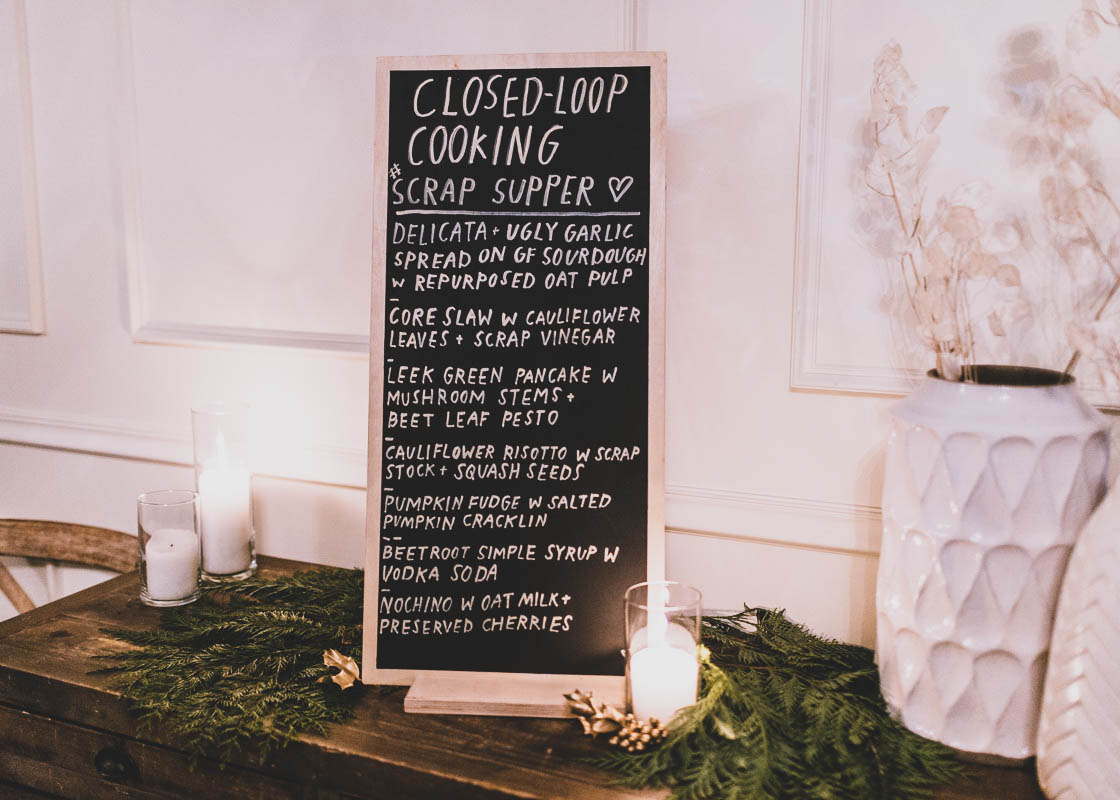 CLOSED-LOOP
COOKING
#SCRAP SUPPER ♡
DELICATA + UGLY GARLIC
SPREAD ON GF SOURDOUGH
W REPURPOSED OAT PULP
–
CORE SLAW W CAULIFLOWER
LEAVES + SCRAP VINEGAR
–
LEEK GREEN PANCAKE W
MUSHROOM STEMS +
BEET LEAF PESTO
–
CAULIFLOWER RISOTTO W SCRAP
STOCK + SQUASH SEEDS
–
PUMPKIN FUDGE W SALTED
PUMPKIN CRACKLIN
--
BEETROOT SIMPLE SYRUP W
VODKA SODA
–
NOCHINO W OAT MILK +
PRESERVED CHERRIES